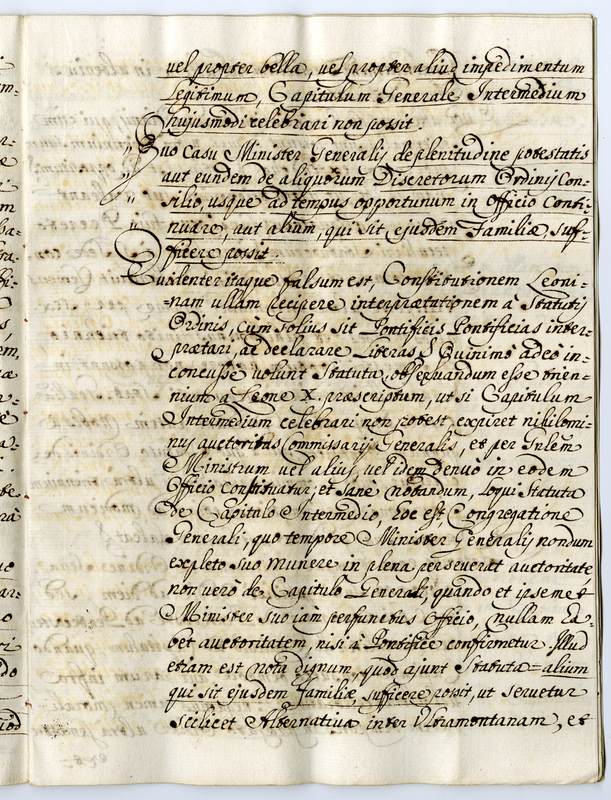 vel propter bella, vel propter aliud impedimentum
legitimum, Capitulum Generale Intermedium
hujusmodi celebrari non possit.
Quo casu Minister Generalis de plenitudine potestatis
aut eundem de aliquorum Discretorum Ordinis Con-
silio, usque ad tempus opportunum in officio Conti-
nuare, aut alium, qui sit ejusdem Familiæ, suf-
ficere possit.
Evidenter itaque falsum est, Constitutionem Leoni-
nam ullam recipere interprætationem à Statutis
Ordinis, cum solius sit Pontificis Pontificias inter-
prætari, ac declarare Literas; Quinimò adeo in-
concussè volunt Statuta, observandum esse trien-
nium à Leone X. præscriptum, ut si Capitulum
Intermedium celebrari non potest, expiret nihilomi-
nus auctoritas Commissarij Generalis, et per Gnlem
Ministrum vel alius, vel idem denuò in eodem
Officio constituatur; et sanè notandum, loqui Statuta
de Capitulo Intermedio, hoc est Congregatione
Generali, quo tempore Minister Generalis nondum
expleto suo munere in plena perseverat auctoritate,
non verò de Capitulo Generali, quando et ipsemet
Minister suo iàm perfunctus Officio, nullam ha-
bet auctoritatem, nisi à Pontifice confirmetur. Illud
etiam est notà dignum, quod ajunt Statuta = alium
qui sit ejusdem Familiæ, sufficere possit, ut servetur
scilicet Alternativa inter Ultramontanam, et